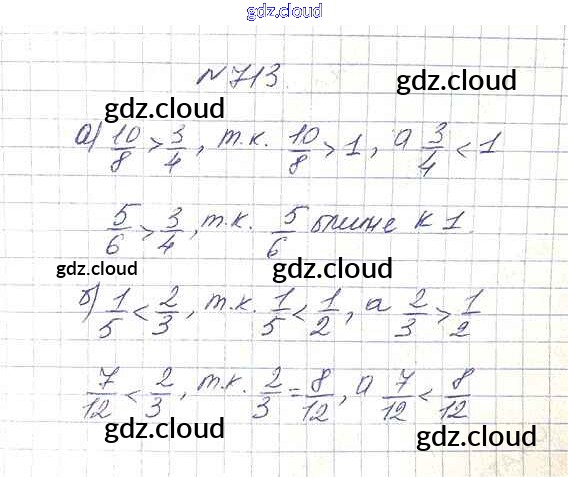 gdz.cloud
№ 713.
gdz.cloud
gdz.cloud
а) 10/8 > 3/4, т.к. 10/8 > 1, а 3/4 < 1
5/6 > 3/4, т.к. 5/6 ближе к 1.
gdz.cloud
gdz.cloud
б) 1/5 < 2/3, т.к. 1/5 < 1/2, а 2/3 > 1/2
7/12 < 2/3, т.к. 2/3 = 8/12, а 7/12 < 8/12
gdz.cloud
gdz.cloud